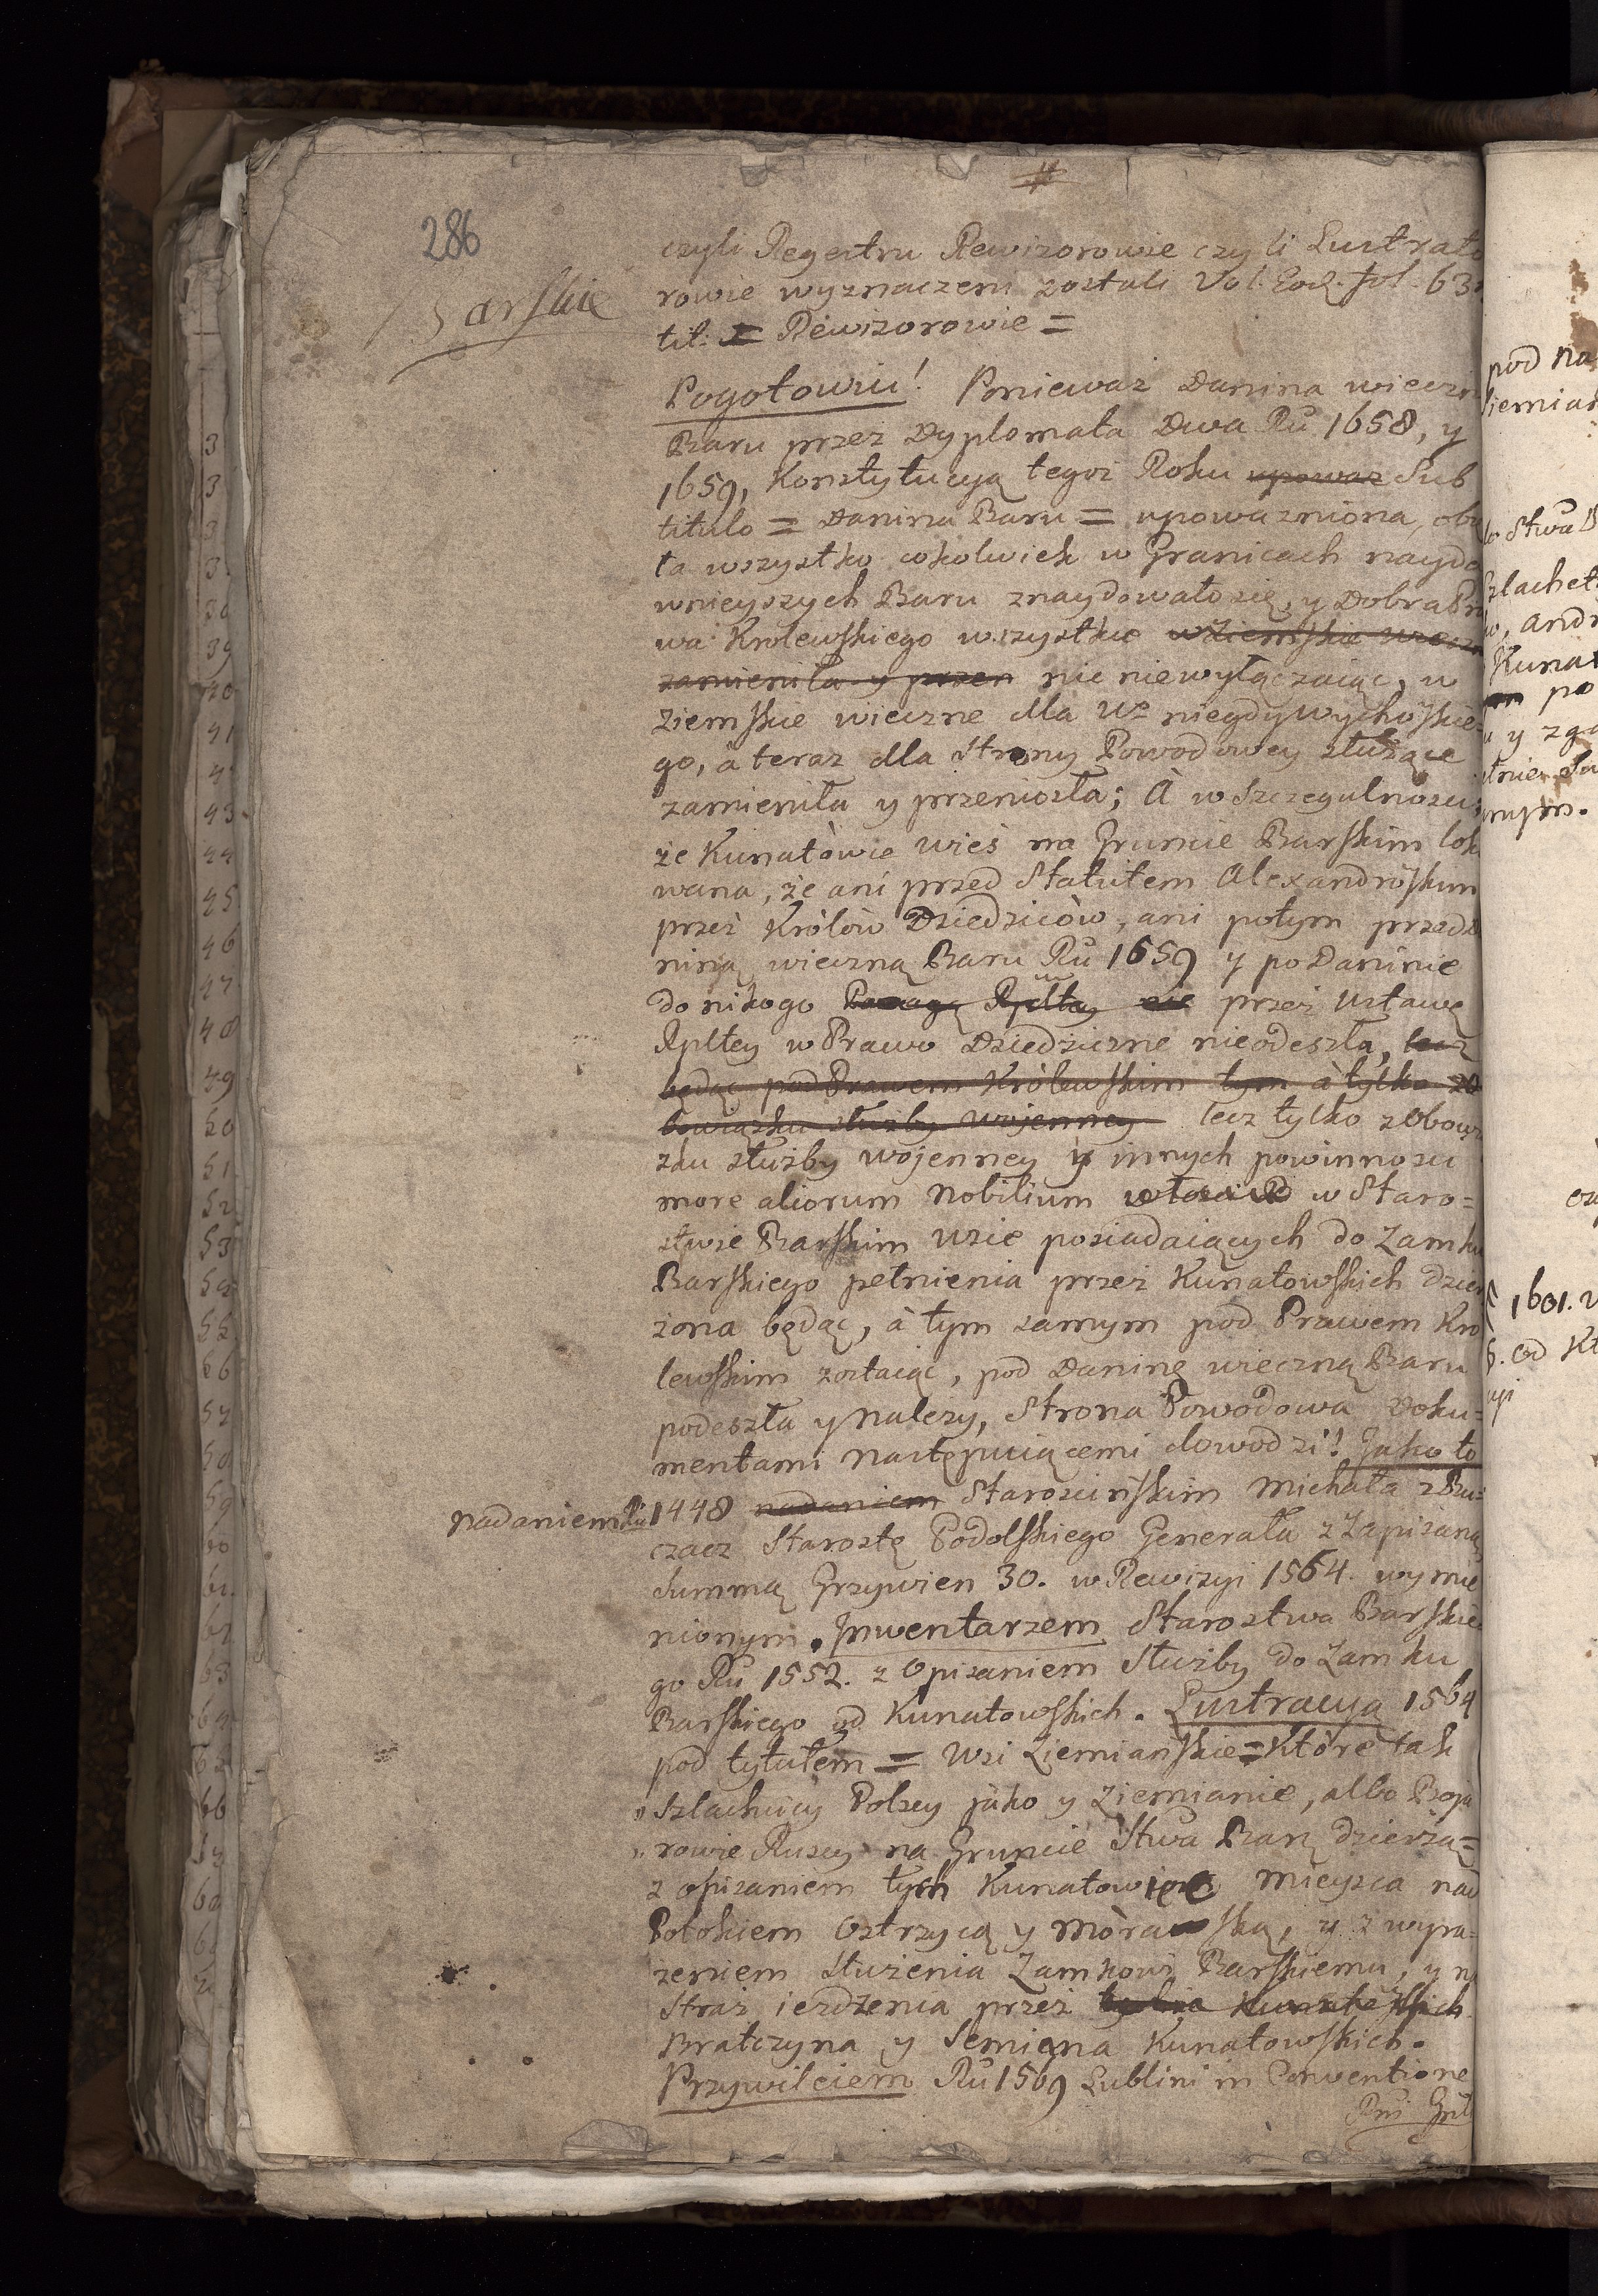 286
Barskie
czyli Regestru Rewizorowie czyli Lustrato
rowie wyznaczeni zostali Vol. Eod. fol. 63
tit: = Rewizorowie =
Pogotowiu! Ponieważ Danina wieczn
Baru przez Dyplomata Dwa Ru 1658, y
1659, Konstytucyą tegoż Roku upoważ Sub
titulo = Danina Baru = upoważniona, oby
ta wszystko cokolwiek w Granicach nayda
wnieyszych Baru znaydowało się, y Dobra Pra
wa Krolewskiego wszystkie w Ziemskie wieczn
zamieniła y przen nic niewyłączaiąc, w
ziemskie wieczne dla Ur niegdy Wychöskie
go, à teraz dla Strony Powodowey służące
zamieniła y przeniosła; À w Szczegulnosci,
że Kunatòwce wieś na Gruncie Barskim lok
wana, że ani przed Statutem Alexandröskim
przez Królòw Dziedziców, ani potym przed D
niną wieczną Baru Ru 1659 y po Daninie
do nikogo Rpltey nie przez Ustawę
Rpltey w Prawo Dziedziczne nieodeszła, lecz
będąc pod Prawem Królewskim tym à tylko z o
bowiązku służby wojenney lecz tylko z Obowią
zku służby wojenney y innych powinnosci
more aliorum Nobilium w Staro=
stwie Barskim wsie posiadaiących do Zamku
Barskiego pełnienia przez Kunatowskich dzier
żona będąc, à tym samym pod Prawem Kro
lewskim zostaiąc, pod Daninę wieczną Baru
podeszła y Należy, Strona Powodowa Doku=
mentami Następuiącemi dowodzi! Jako to
Nadaniem Ru 1448 nadaniem Staroscińskim Michała z Bu=
czacz Starostę Podolskiego Generała z Zapisaną
Summą Grzywien 30. w Rewizyi 1564. wymie
nionym. Inwentarzem Starostwa Barskie
go Ru 1552. z Opisaniem Służby do Zamku
Barskiego od Kunatowskich. Lustracyą 1564
pod tytułem = Wsi Ziemiańskie = Które tak
" Szlachcicy Polscy jàko y Ziemianie, albo Boja
" rowie Ruscy na Gruncie Stwa Bar. dzierżą =
z opisaniem tych Kunatowiec mieysca nad
Potokiem Ostrzycą y Mòra ską, y z wyra=
zeniem służenia Zamkowi Barskiemu, y na
Straż ierdzenia przez tychże Kunatowskich
Bratczyna y Semiena Kunatowskich.
Przywileiem Ru 1569 Lublini in Conventione
Rni Gnli
3
3
3
3
38
39
40
41
4
43
44
45
46
47
48
49
50
51
52
53
54
55
56
57
58
59
60
61
62
63
64
65
66
67
68
pod Na
iemian
Stwa B
zlachet
, Andr
Kunat
po
y zga
nym.
1601. w
. od Kt